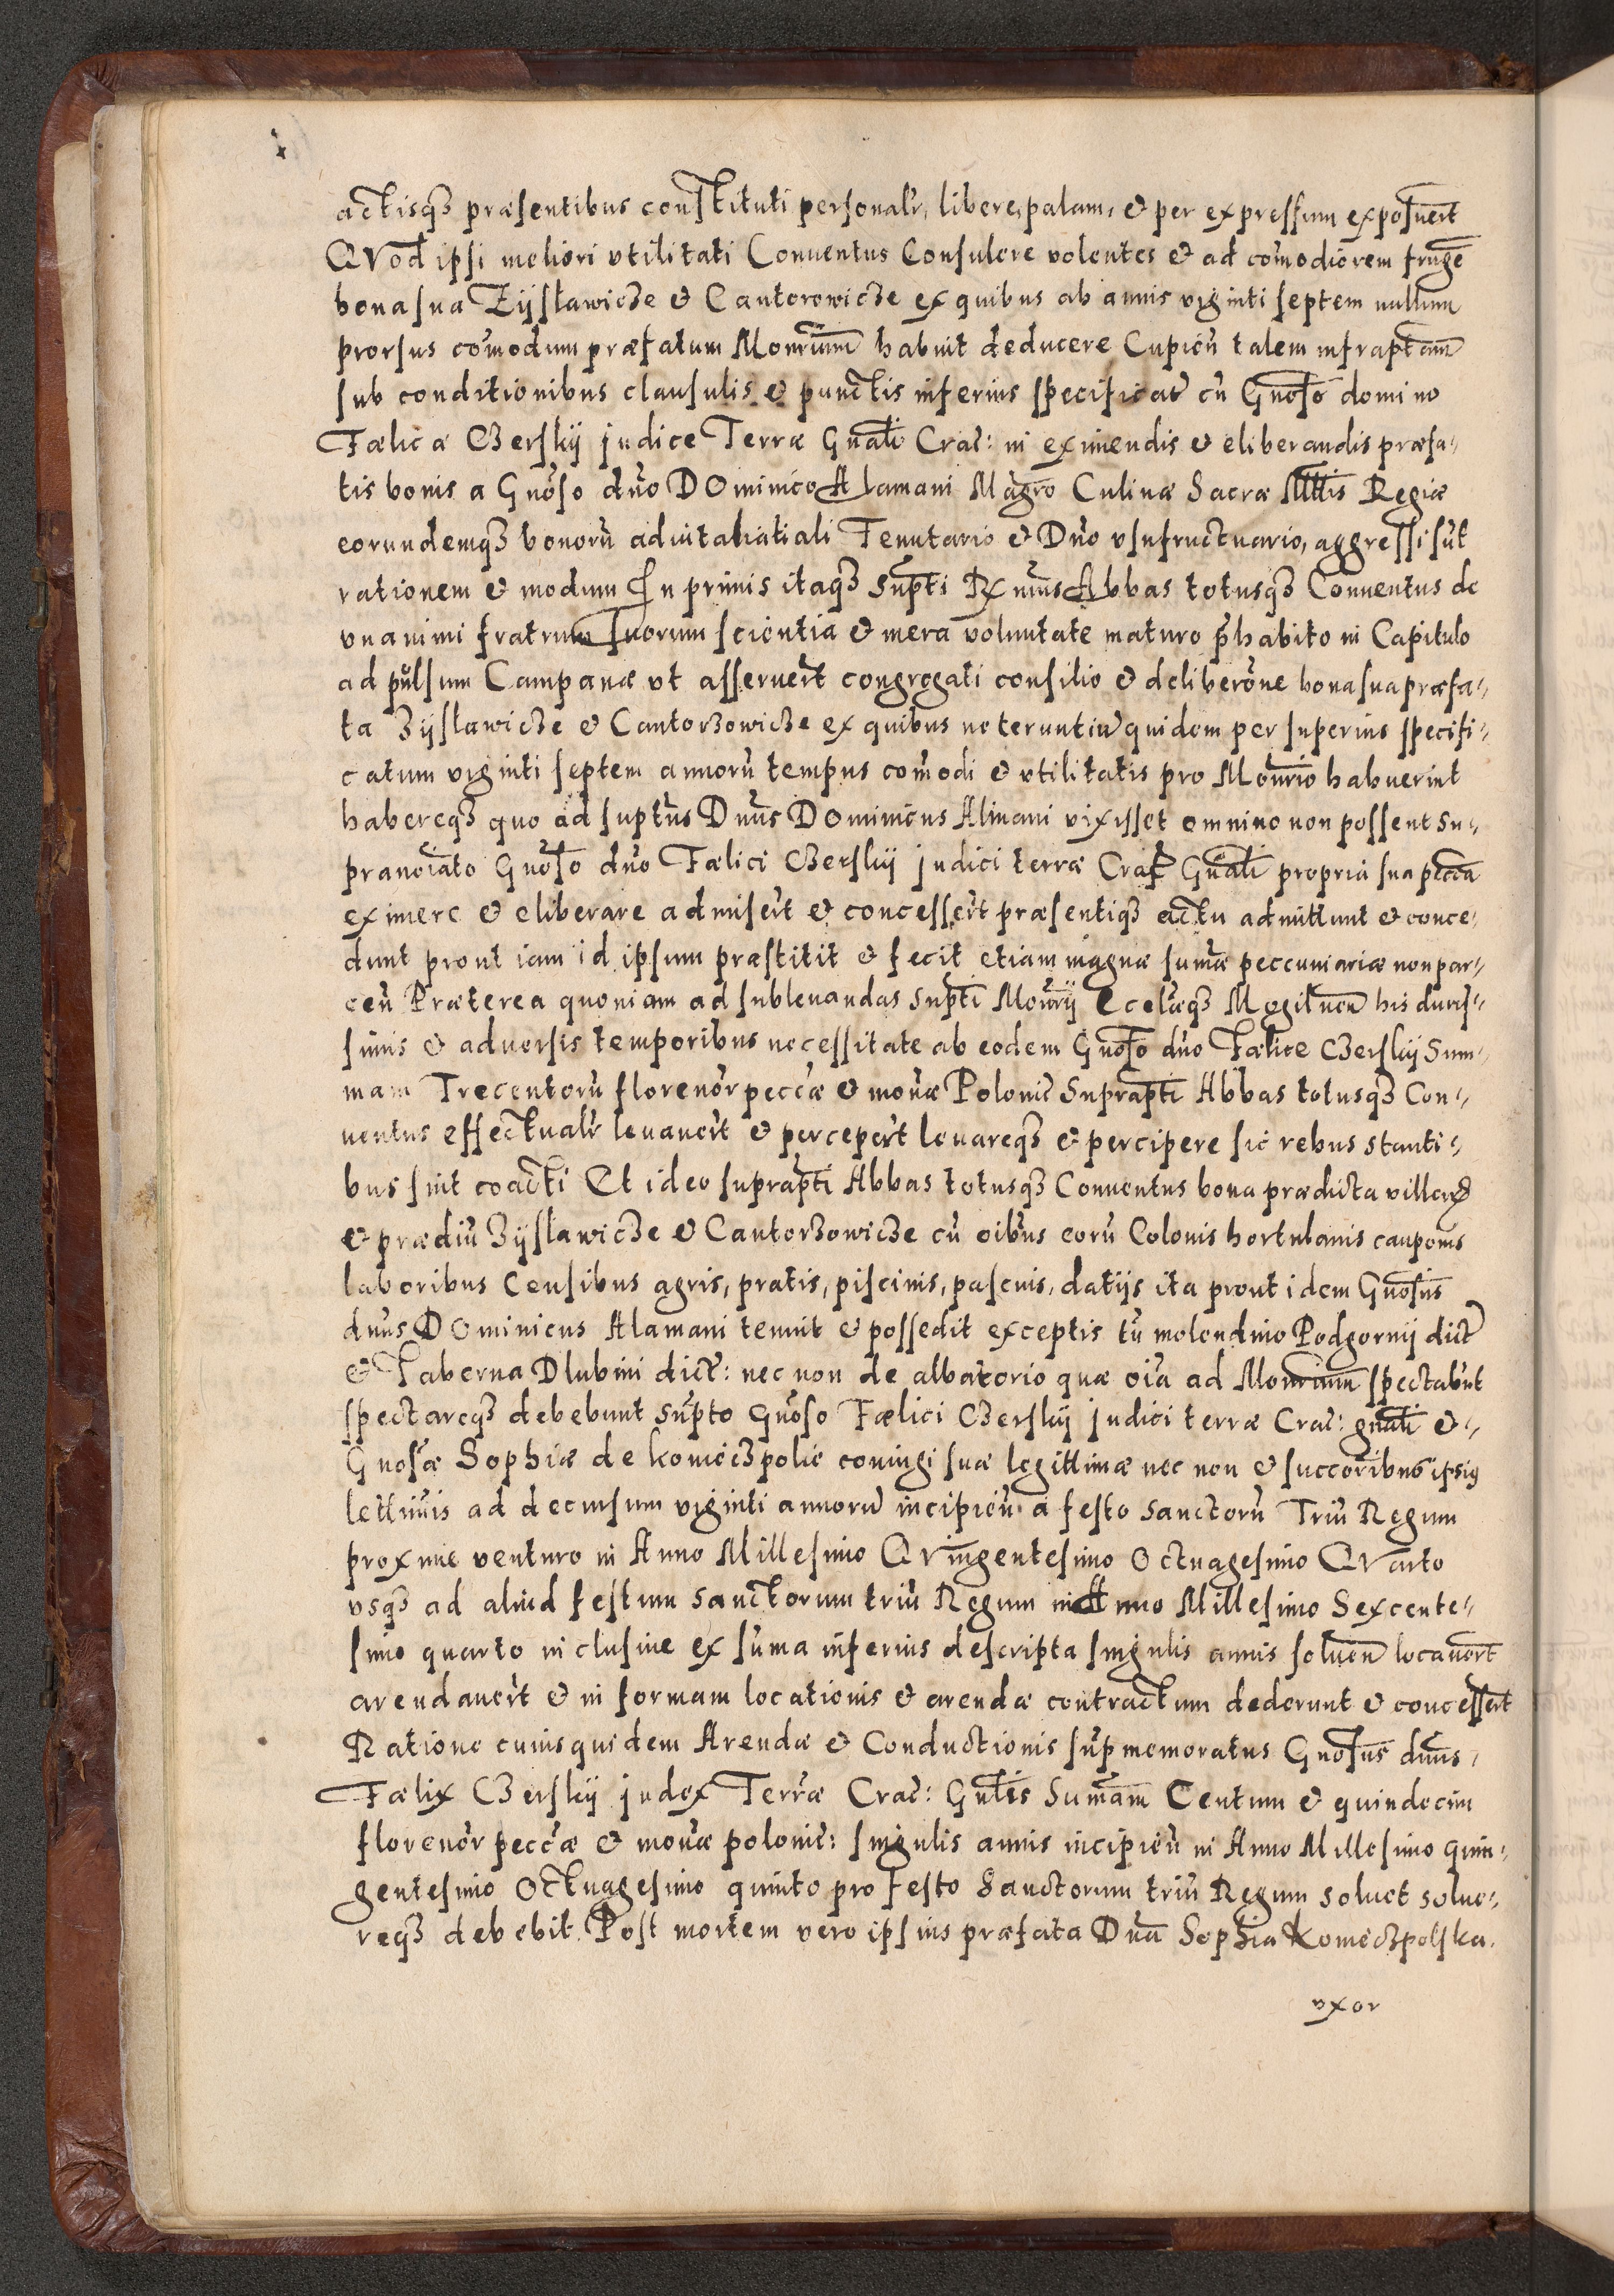 actisqꝫ præsentibus constituti personalr̃, libere, palam, & per expressum exposuer̃t
QVod ipsi meliori vtilitati Conuentus Consulere volentes & ad com̃odiorem frugẽ
bona sua Zysławicze & Cantorowicze ex quibus ab annis viginti septem nullum
prorsus com̃odum præfatum Monr̃ium habuit deducere Cupień talem infraptam̃
sub conditionibus clausulis & punctis inferius specificat̃ cũ Gnoso domino
Fælicæ Czerskij judice Terræ Gnãli Crac̃: in eximendis & eliberandis præfa-
tis bonis a Gnoso dño DOminico Alamani Magr̃o Culinæ Sacræ Mt̃tis Regiæ
eorundemqꝫ bonorũ aduitalitiali Tenutario & Dño vsufructuario, aggressi sũt
rationem & modum In primis itaqꝫ supt̃i Rx̃mus Abbas totusqꝫ Conuentus de
vnanimi fratrum suorum scientia & mera voluntate maturo p̃habito in Capitulo
ad pulsum Campanæ vt asseruer̃t congregati consilio & deliberõne bona sua præfa-
ta Zyslawicze & Cantorzowicze ex quibus ne teruntiũ quidem per superius specifi-
catum viginti septem annorũ tempus com̃odi & vtilitatis pro Monr̃io habuerint
habereqꝫ quo ad suptũs Dñus DOminicus Almani vixisset omnino non possent su-
pranoĩato Gnoso dño Fælici Czerskij judici terræ Crac̃ Gnãli propria sua pecc̃a
eximere & eliberare admiser̃t & concesser̃t præsentiqꝫ actu admittunt & conce-
dunt prout iam id ipsum præstitit & fecit etiam magnæ sum̃æ peccuniariæ non par-
ceñ Præterea quoniam ad subleuandas supt̃i Monr̃ij Eccl̃æqꝫ Mogilneñ his duris-
simis & aduersis temporibus necessitate ab eodem Gnoso dño Fælice Czerskij Sum-
mam Trecentorũ florenor̃ pecc̃æ & monæ Polonic̃ Suprapt̃i Abbas totusqꝫ Con-
uentus effectualr̃ leuauer̃t & perceper̃t leuareqꝫ & percipere sic rebus stanti-
bus sint coacti Et ideo suprapt̃i Abbas totusqꝫ Conuentus bona prædicta villarꝫ
& prædiũ Zyslawicze & Cantorzowicze cũ oĩbus eorũ Colonis hortulanis cauponis
laboribus Censibus agris, pratis, piscinis, pascuis, datijs ita prout idem Gnosus
dñus DOminicus Alamani tenuit & possedit exceptis tñ molendino Podgornij dict̃
& Taberna Dlubni dict̃: nec non de albatorio quæ oĩa ad Monr̃ium spectabũt
spectareqꝫ debebunt supt̃o Gnoso Fælici Czerskij judici terræ Crac̃: gnãli &-
Gnosæ Sophiæ de koniećzpolie coniugi suæ legittimæ nec non & succorĩbus ipsius
lettimis ad decursum viginti annorũ incipień a festo Sanctorũ Triũ Regum
proxime venturo in Anno Millesimo QVingentesimo Octuagesimo QVarto
vsqꝫ ad aliud festum sanctorum triũ Regum in Anno Millesimo Sexcente-
simo quarto inclusiue ex sum̃a inferius descripta singulis annis solueñ locauer̃t
arendauer̃t & in formam locationis & arendæ contractum dederunt & concesser̃t
Ratione cuius quidem Arendæ & Conductionis sup̃memoratus Gnosus dñus
Fælix Czerskij judex Terræ Crac̃: Gnl̃is Sum̃am Centum & quindecim
florenor̃ pecc̃æ & monæ polonic̃: singulis annis incipień in Anno Millesimo quin-
gentesimo Octuagesimo quinto pro festo Sanctorum triũ Regum soluet solue-
reqꝫ debebit. Post mortem vero ipsius præfata Dña Sophia Koniećzpolska.
vxor